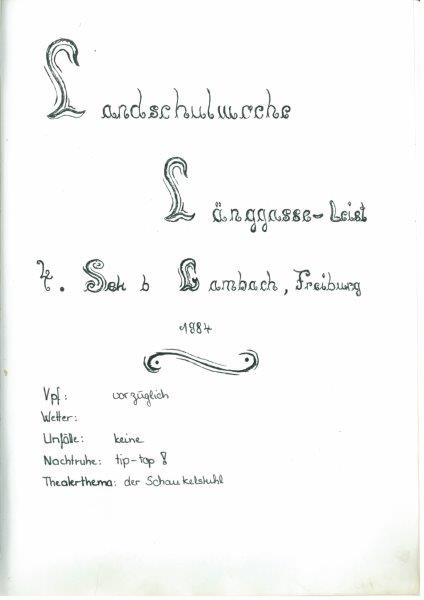 Landschulwoche
Länggasse-Leist
4. Sek b Lambach, Freiburg
1984
Vpf: vorzüglich
Wetter:
Unfälle: keine
Nachtruhe: tip-top!
Theaterthema: der Schaukelstuhl